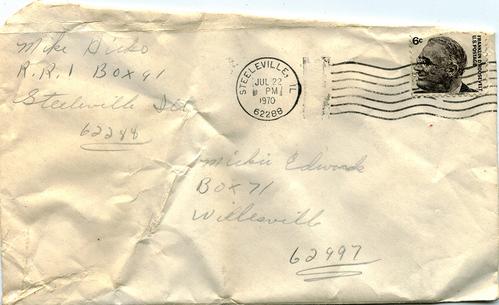 Mike
R.R.1 Box 91
Steeleville Ill
62288
STEELEVILLE, IL
JUL 22
PM
1970
62288
6c
FRANKLIN D. ROOSEVELT
U.S. POSTAGE
Mickie Edwards
Box 71
Willisville
62997